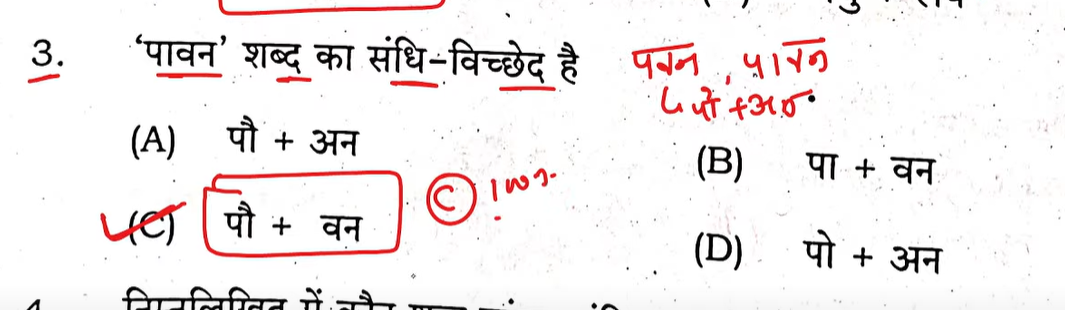 3. 'पावन' शब्द का संधि-विच्छेद है पवन , पावन
पो + अन
(A) पौ + अन
(B) पा + वन
(C) पौ + वन (C)
(D) पो + अन